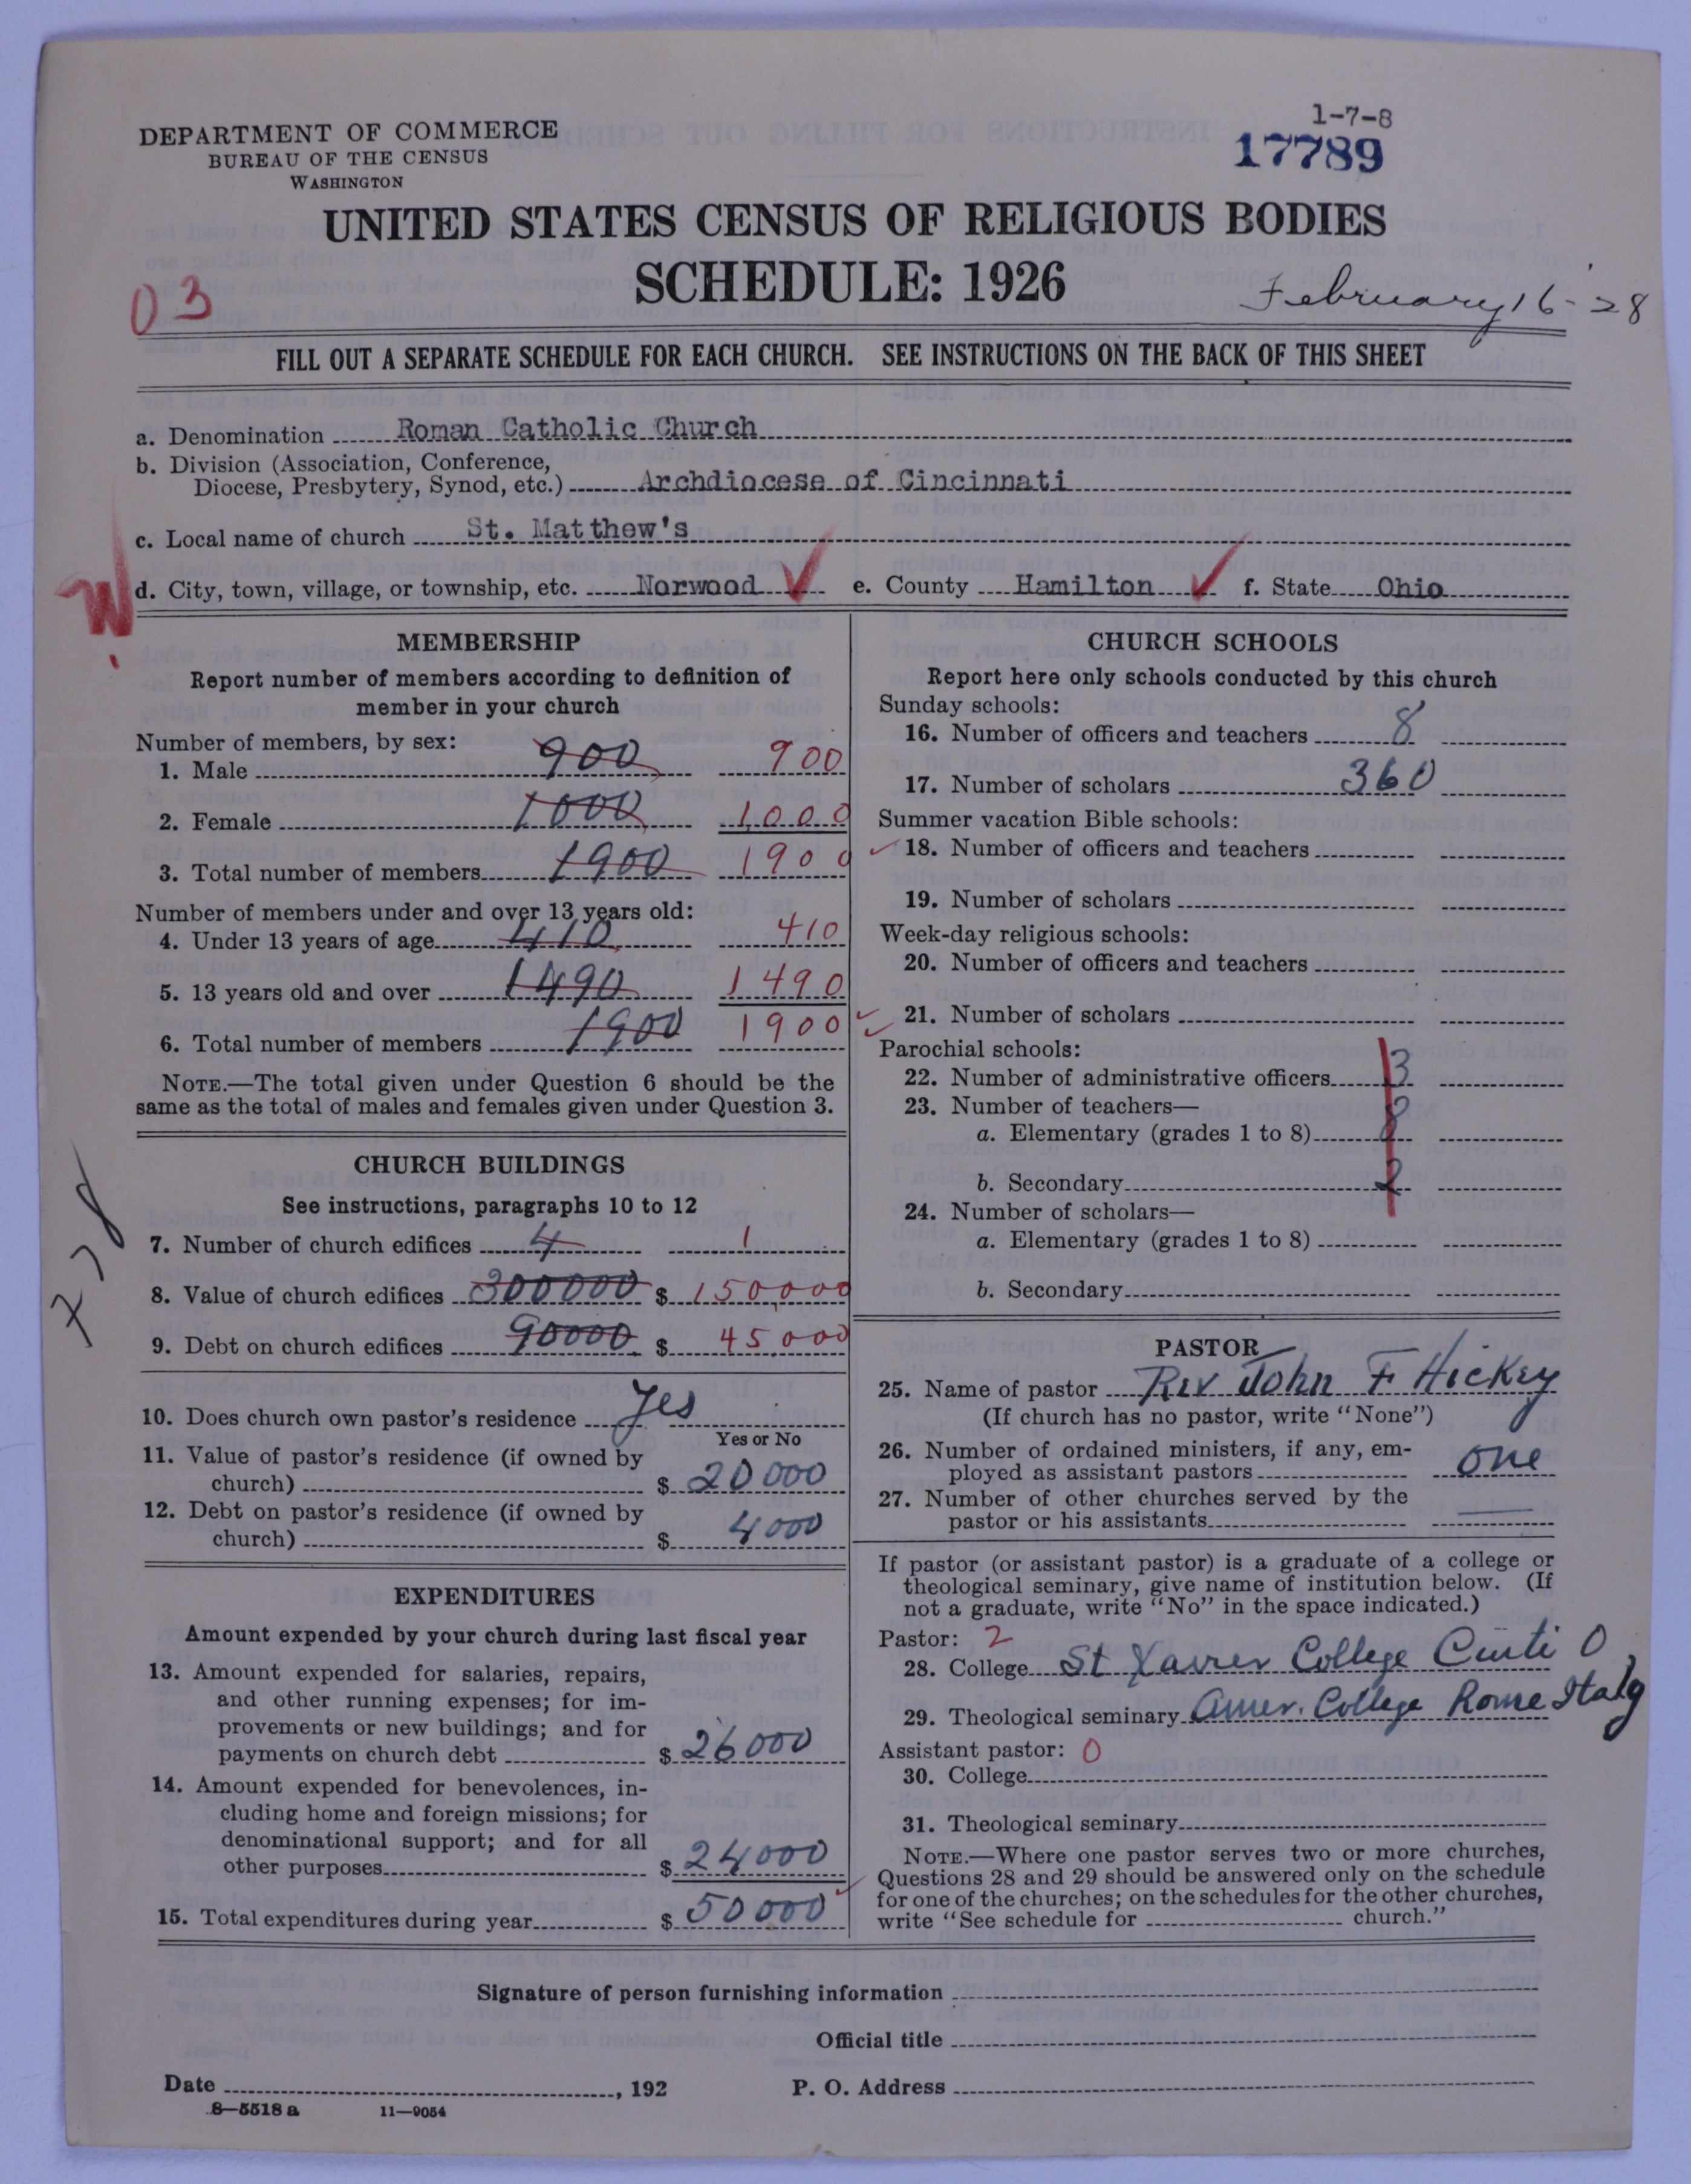 1-7-8
DEPARTMENT OF COMMERCE
17789
BUREAU OF THE CENSUS
WASHINGTON
UNITED STATES CENSUS OF RELIGIOUS BODIES
SCHEDULE: 1926
February 16-28
03
FILL OUT A SEPARATE SCHEDULE FOR EACH CHURCH. SEE INSTRUCTIONS ON THE BACK OF THIS SHEET
a. Denomination Roman Catholic Church
b. Division (Association, Conference,
Diocese, Presbytery, Synod, etc.) Archdiocese of Cincinnati
c. Local name of church St. Matthew's
W!
d. City, town, village, or township, etc. Norwood e. County Hamilton f. State Ohio
MEMBERSHIP
Report number of members according to definition of
member in your church
Number of members, by sex:
1. Male 900 900
2. Female 1000 1000
3. Total number of members 1900 1900
Number of members under and over 13 years old:
4. Under 13 years of age 410 410
5. 13 years old and over 1490 1490
6. Total number of members 1900 1900
NOTE.—The total given under Question 6 should be the
same as the total of males and females given under Question 3.
CHURCH BUILDINGS
See instructions, paragraphs 10 to 12
7. Number of church edifices 4 1
8. Value of church edifices 300000 $ 150,000
9. Debt on church edifices 90000 $ 45,000
10. Does church own pastor's residence Yes
Yes or No
11. Value of pastor's residence (if owned by
church) $ 20000
12. Debt on pastor's residence (if owned by
church) $ 4000
EXPENDITURES
Amount expended by your church during last fiscal year
13. Amount expended for salaries, repairs,
and other running expenses; for im-
provements or new buildings; and for
payments on church debt $ 26000
14. Amount expended for benevolences, in-
cluding home and foreign missions; for
denominational support; and for all
other purposes $ 24000
15. Total expenditures during year $ 50000
CHURCH SCHOOLS
Report here only schools conducted by this church
Sunday schools:
16. Number of officers and teachers 8
17. Number of scholars 360
Summer vacation Bible schools:
18. Number of officers and teachers
19. Number of scholars
Week-day religious schools:
20. Number of officers and teachers
21. Number of scholars
Parochial schools:
22. Number of administrative officers 3
23. Number of teachers—
a. Elementary (grades 1 to 8) 8
b. Secondary 2
24. Number of scholars—
a. Elementary (grades 1 to 8)
b. Secondary
PASTOR
25. Name of pastor Rev John F Hickey
(If church has no pastor, write "None")
26. Number of ordained ministers, if any, em-
ployed as assistant pastors one
27. Number of other churches served by the
pastor or his assistants —
If pastor (or assistant pastor) is a graduate of a college or
theological seminary, give name of institution below. (If
not a graduate, write "No" in the space indicated.)
Pastor: 2
28. College St Xavier College Cinti O
29. Theological seminary Amer. College Rome Italy
Assistant pastor: 0
30. College
31. Theological seminary
NOTE.—Where one pastor serves two or more churches,
Questions 28 and 29 should be answered only on the schedule
for one of the churches; on the schedules for the other churches,
write "See schedule for church."
Signature of person furnishing information
Official title
Date , 192 P. O. Address
8—5518 a 11—9054